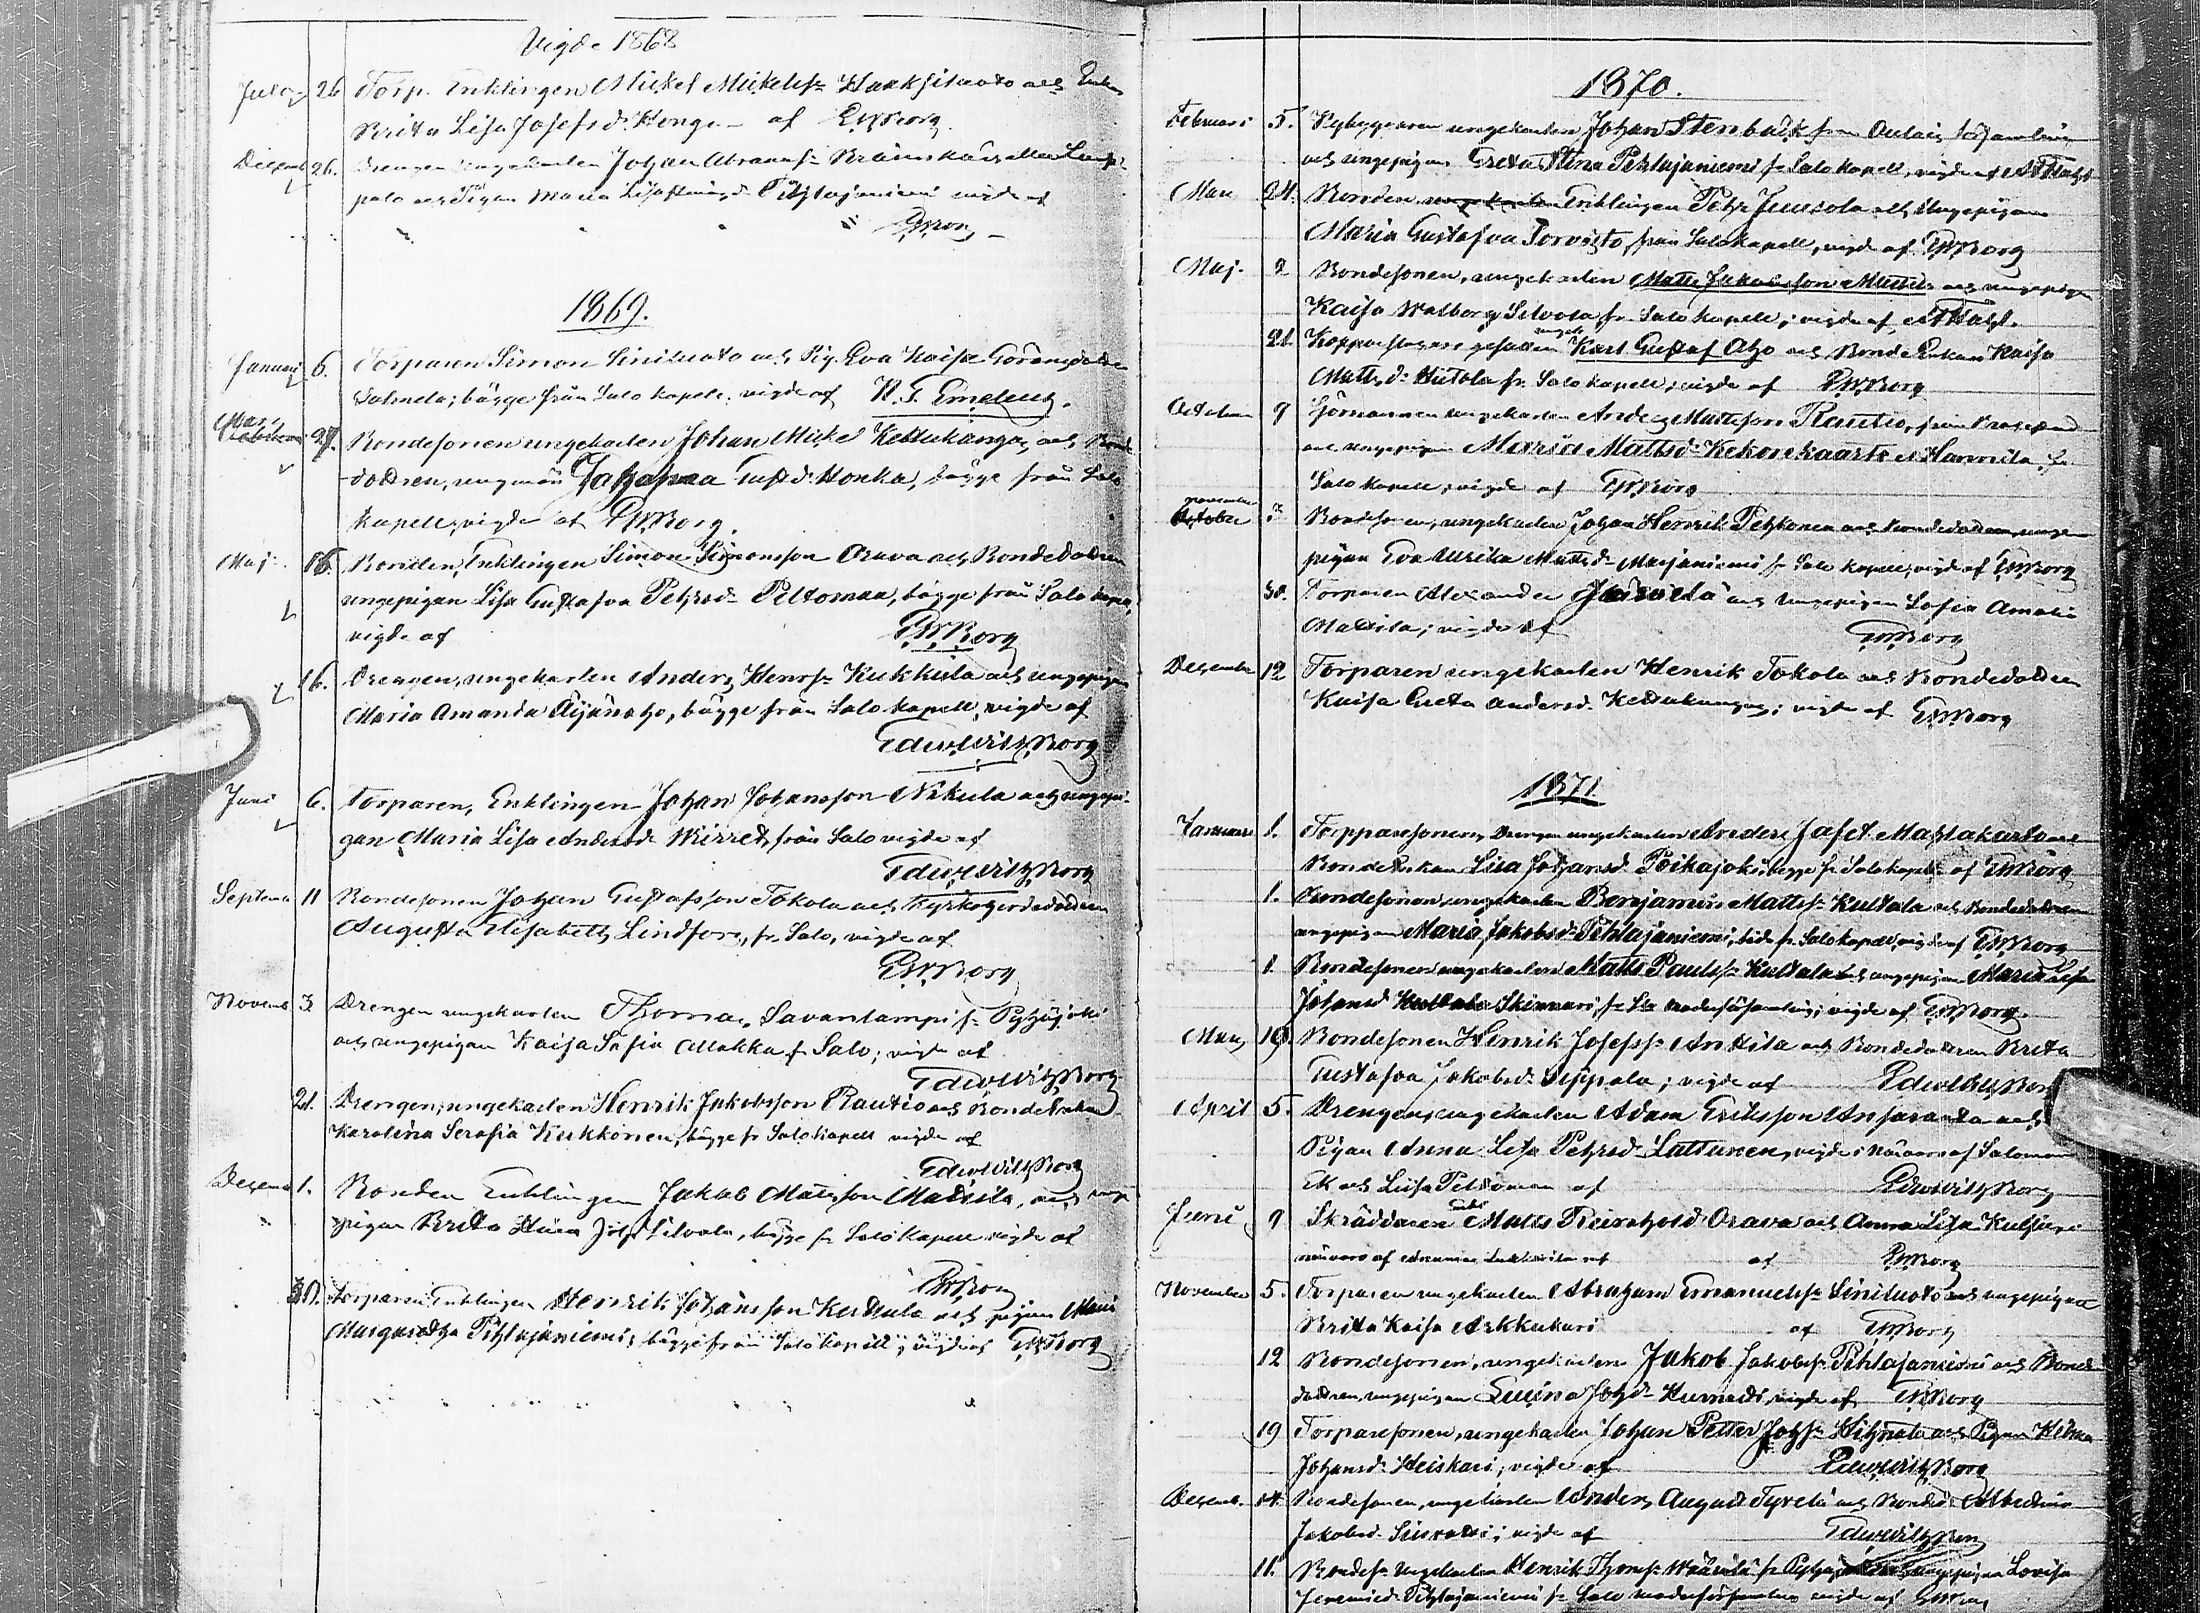 Vigde 1868
July 26 Torp. Enklingen Mickel Mickelss: Haaksiluoto och Enkan
Brita Lisa Josefsd: Honga af EWBorg
Decemb 26. Drengen ungekarlen Johan Abramss:
palo och Pigan Maria Lisa Pihlajaniemi vigde af
EWBorg
1869.
Januarij 6. Torparen Simon Siniluoto och Pig. Eva Kaisa Göransdotter
Salmela; bägge från Salo kapell, vigde af
Mars 27. Bondesonen ungekarlen Johan Mickel Kettukangas och Bonde
dottren, ungmön Johanna Gustd: Honka, bägge från Salo
kapell, vigde af EWBorg.
Maj 16. Bonden, Enklingen Simon Simonsson Orava och Bondedottren
ungepigan Lisa Gustafva Pehrsd: Peltomaa, bägge från Salo kapell,
vigde af EWBorg
16. Drengen, ungekarlen Anders Henrss: Kukkula och ungepigan
Maria Amanda Äijänaho, bägge från Salo kapell, vigde af
Edw Wilh Borg
Juni 6. Torparen, Enklingen Johan Johansson Nikula och ungepi-
gan Maria Lisa Andersd: Wirret, från Salo vigde af
Edw Wilh Borg
Septemb 11 Bondesonen Johan Gustafsson Tokola och Kyrkogerdedottren
Augusta Elisabeth Lindfors, fr. Salo, vigde af
EWBorg
Novemb 3 Drengen ungekarlen Thomas Savanlampi fr. Pyhäjoki
och ungepigan Kaisa Sofia Mokka fr Salo; vigde af
Edw Wilh Borg
21. Drengen, ungekarlen Henrik Jakobsson Rautio och Bondedottren
Karolina Serafia Kukkonen, bägge fr Salo kapell vigde af
Edw Wilh Borg
Decemb 1. Bonden Enklingen Jakob Matsson Mattila, och unge
pigan Brita Stina Joh: Silvola, bägge fr Salo Kapell vigde af
EWBorg
30. Torparen Enklingen Henrik Johansson Kukkula och pigan Maria
Margaretha Pihlajaniemi, bägge från Salo Kapell; vigde af EWBorg
1870.
Februari 5. Nybyggaren ungekarlen Johan Stenbäck från Oulais församling
och ungepigan Greta Stina Pihlajaniemi fr Salo kapell, vigde af
Mars 24. Bonden ungekarlen Enklingen Pehr Juusola och Ungepigan
Maria Gustafva Torvisto, från Salo kapell, vigde af EWBorg
Maj. 2 Bondesonen, ungekarlen Matts Jakobsson Mattila och ungepigan
Kaisa Walborg Silvola fr Salo kapell; vigde af
21. Kopparslagare gesällen ungek Karl Gustaf Aho och Bonde Enkan Kaisa
Mattsd: Hutola fr. Salo kapell; vigde af EWBorg
October 9 Sjömannen ungekarlen Anders Mattsson Rautio, från Brahestad
och ungepigan Maria Mattsd: Kekonkaarto el Hannila, fr
Salo kapell; vigde af EWBorg
November October 5 Bondesonen, ungekarlen Johan Henrik Pehkonen och bondedottren, unge
pigan Eva Ulrika Mattsd: Marjaniemi fr Salo kapell, vigde af EWBorg
30. Torparen Alexander Junttila och Ungepigan Sofia Amalia
Mattila; vigde af EWBorg
December 12 Torparen ungekarlen Henrik Tokola och Bondedottren
Kaisa Greta Andersd. Kettukangas; vigde af EWBorg
1871
Januari 1. Torparesonen, Drengen ungekarlen Anders Jafet Mahlakaarto och
Bonde Enkan Lisa Johansd. Poikajoki, bägge fr Salo kapell af EWBorg
1. Bondesonen, ungekarlen Benjamin Mattss: Kultala och Bondedottren
ungepigan Maria Jakobsd: Pihlajaniemi, båda fr Salo kapell, vigde af EWBorg
1. Bondesonen ungekarlen Matts Paulss: Kultala och ungepigan Maria Lisa
Johansd Skinnari, fr Salo moderförsamling; vigde af EWBorg.
Mars 19 Bondesonen Henrik Josefss: Anttila och Bondedottren Brita
Gustafva Jakobsd: Seppälä; vigde af Edw Wilh Borg
April 5. Drengen, ungekarlen Adam Eriksson Ansaranta och
Pigan Anna Lisa Pehrsd: Lattunen, vigde i närvaro af Salomon
och Lisa Peltomaa af Edw Wilh Borg
Juni 9 Skräddaren Matts Reinhold Orava och Anna Lisa
närvaro af af EWBorg
November 5. Torparen ungekarlen Abraham Emanuelss: Siniluoto och ungepigan
Brita Kaisa Arkkukari af EWBorg
12 Bondesonen, ungekarlen Jakob Jakobss: Pihlajaniemi och Bonde
dottren, ungepigan Lovisa Johd: vigde af EWBorg
19 Torparesonen, ungekarlen Johan Petter Johss: och Pigan Helena
Johansd: Heiskari; vigde af Edw Wilh Borg
Decemb. 14. Bondesonen, ungekarlen Anders August Tyrelä och Bonded: Albertina
Jakobsd. vigde af Edw Wilh Borg
11. Bondess ungekarlen Henrik Thomss: fr Pyhäjoki och ungepigan Lovisa
Jeremiasd: Pihlajaniemi fr Salo moderförsamling vigde af EWBorg